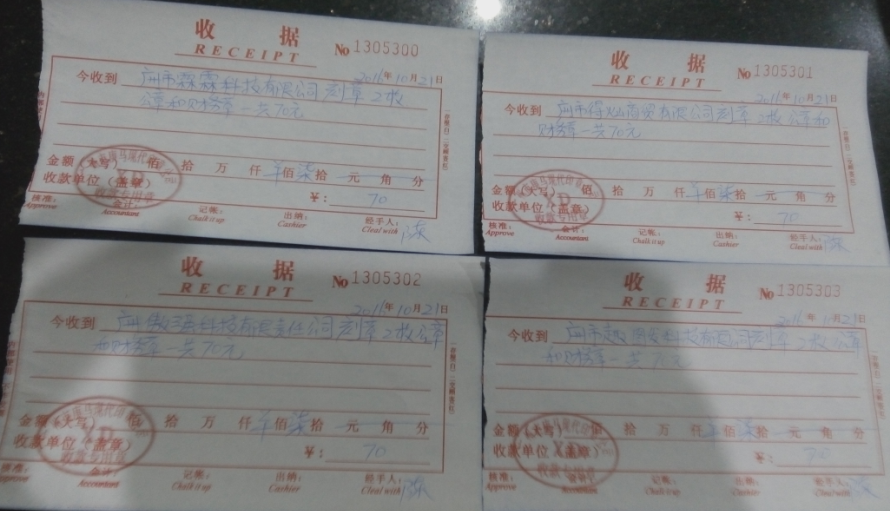 收 据
RECEIPT
No 1305300
2016年10月21日
今收到 广州市霖霖科技有限公司 刻章 2枚
公章和财务章一共70元
金额(大写) 佰 拾 万 仟 佰柒拾 元 角 分
收款单位(盖章)
¥: 70
核准: 会计: 记账: 出纳: 经手人: 陈
Approve Accountant Chalk it up Cashier Cleal with
收 据
RECEIPT
No 1305301
2016年10月21日
今收到 广州市 商贸有限公司刻章 2枚 公章和
财务章一共70元
金额(大写) 佰 拾 万 仟 佰柒拾 元 角 分
收款单位(盖章)
收款专用章
¥: 70
核准: 会计: 记账: 出纳: 经手人: 陈
Approve Accountant Chalk it up Cashier Cleal with
收 据
RECEIPT
No 1305302
2016年10月21日
今收到 广州 科技有限责任公司 刻章 2枚 公章
和财务章一共70元
金额(大写) 佰 拾 万 仟 佰柒拾 元 角 分
收款单位(盖章)
收款专用章
¥: 70
核准: 会计: 记账: 出纳: 经手人: 陈
Approve Accountant Chalk it up Cashier Cleal with
收 据
RECEIPT
No 1305303
2016年10月21日
今收到 广州市 科技有限公司刻章 2枚 公章
和财务章一共70元
金额(大写) 佰 拾 万 仟 佰柒拾 元 角 分
收款单位(盖章)
¥: 70
核准: 会计: 记账: 出纳: 经手人: 陈
Approve Accountant Chalk it up Cashier Cleal with